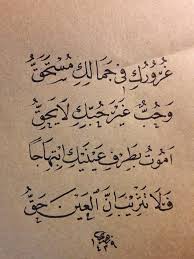 غُرُورُكِ في جَمَالِكِ مُسْتَحَقُّ
وَحُبٌّ غَيْرُ حُبِّكِ لَا يَحِقُّ
اَمُوتُ بِطَرْفِ عَيْنَيْكِ ابْتِهَاجًا
فَلَا الْعَيْنَ حَقُّ
١٤٣٩